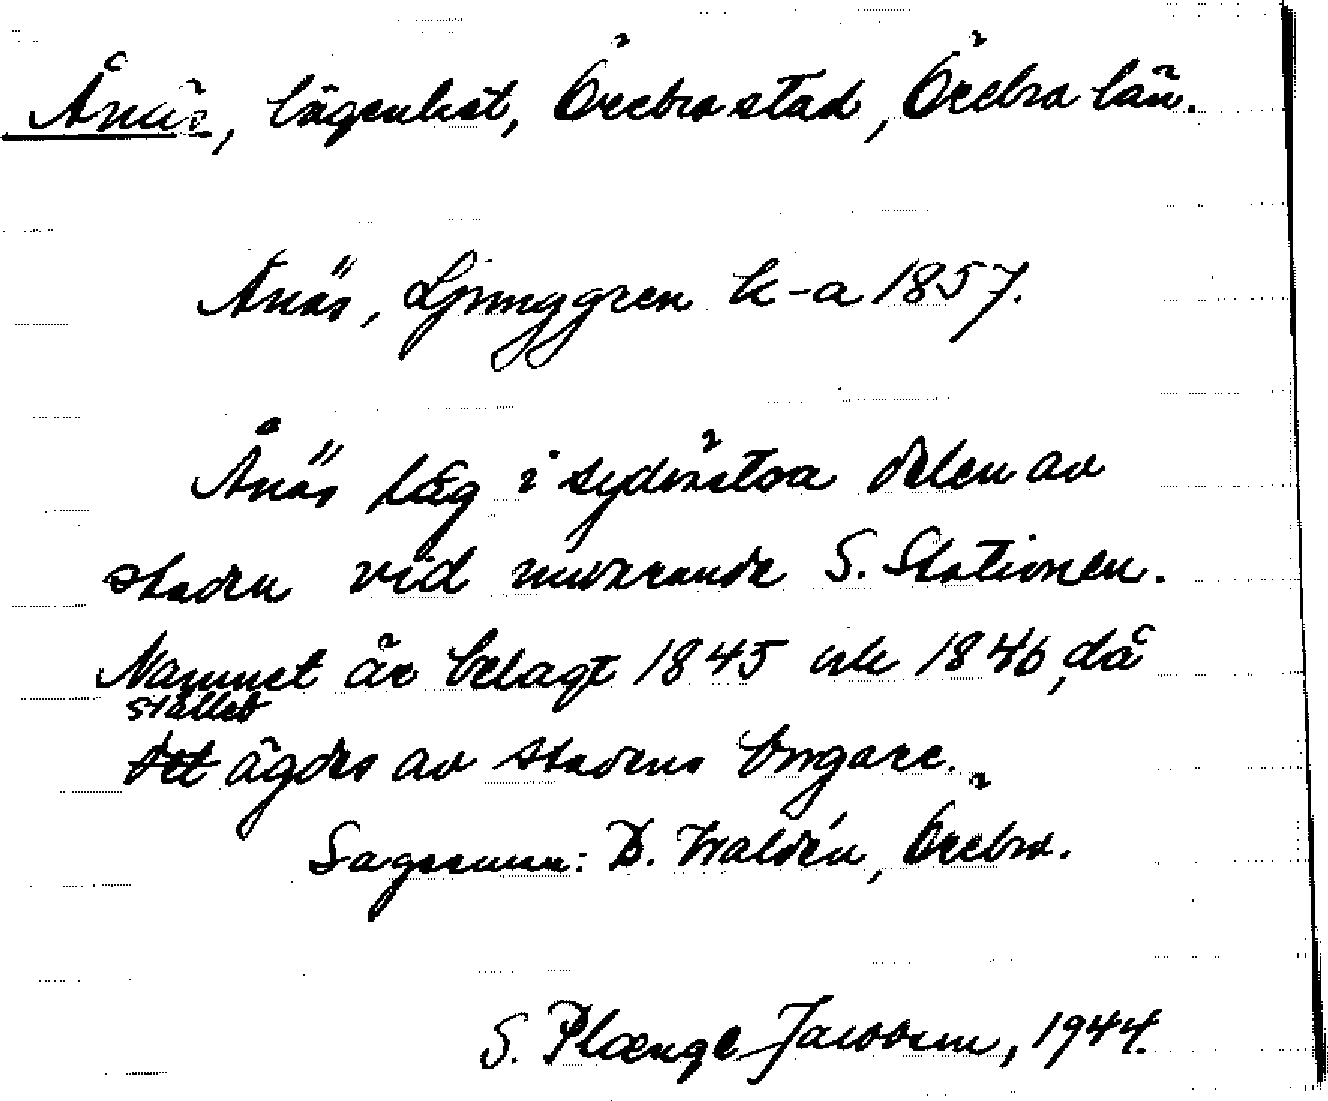 Ånäs, lägenhet, Örebro stad, Örebro län.
Ånäs, Ljunggren k-a 1857.
Ånäs låg i sydöstra delen av
staden vid nuvarande S. Stationen.
Namnet är belagt 1845 och 1846, då
stället
det ägdes av stadens borgare.
Sagesman: D. Waldén, Örebro.
S. Plænge Jacobson, 1944.